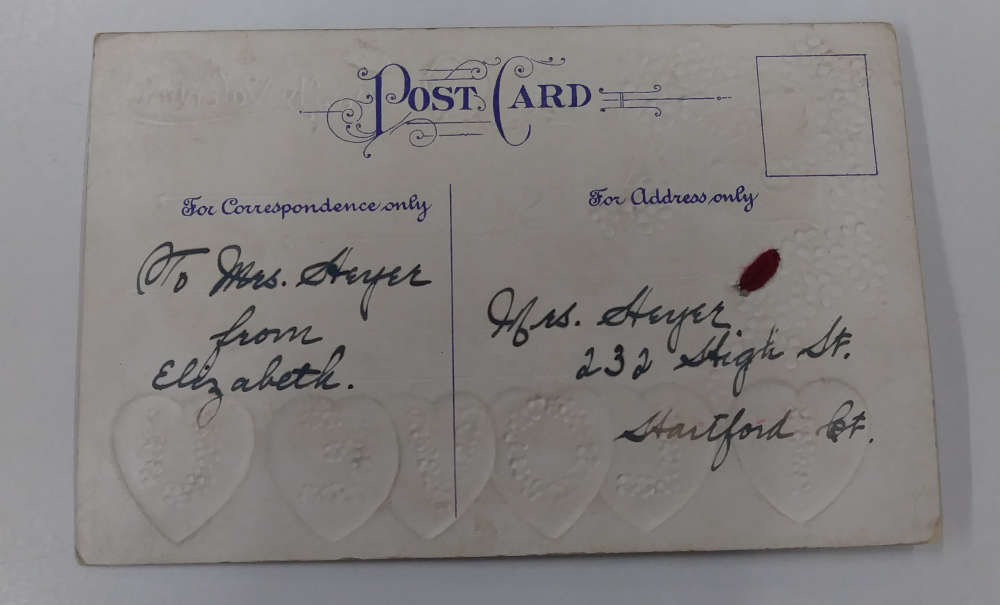 POST CARD
For Correspondence only
For Address only
To Mrs. Heyer
from
Elizabeth.
Mrs. Heyer.
232 High St.
Hartford Ct.